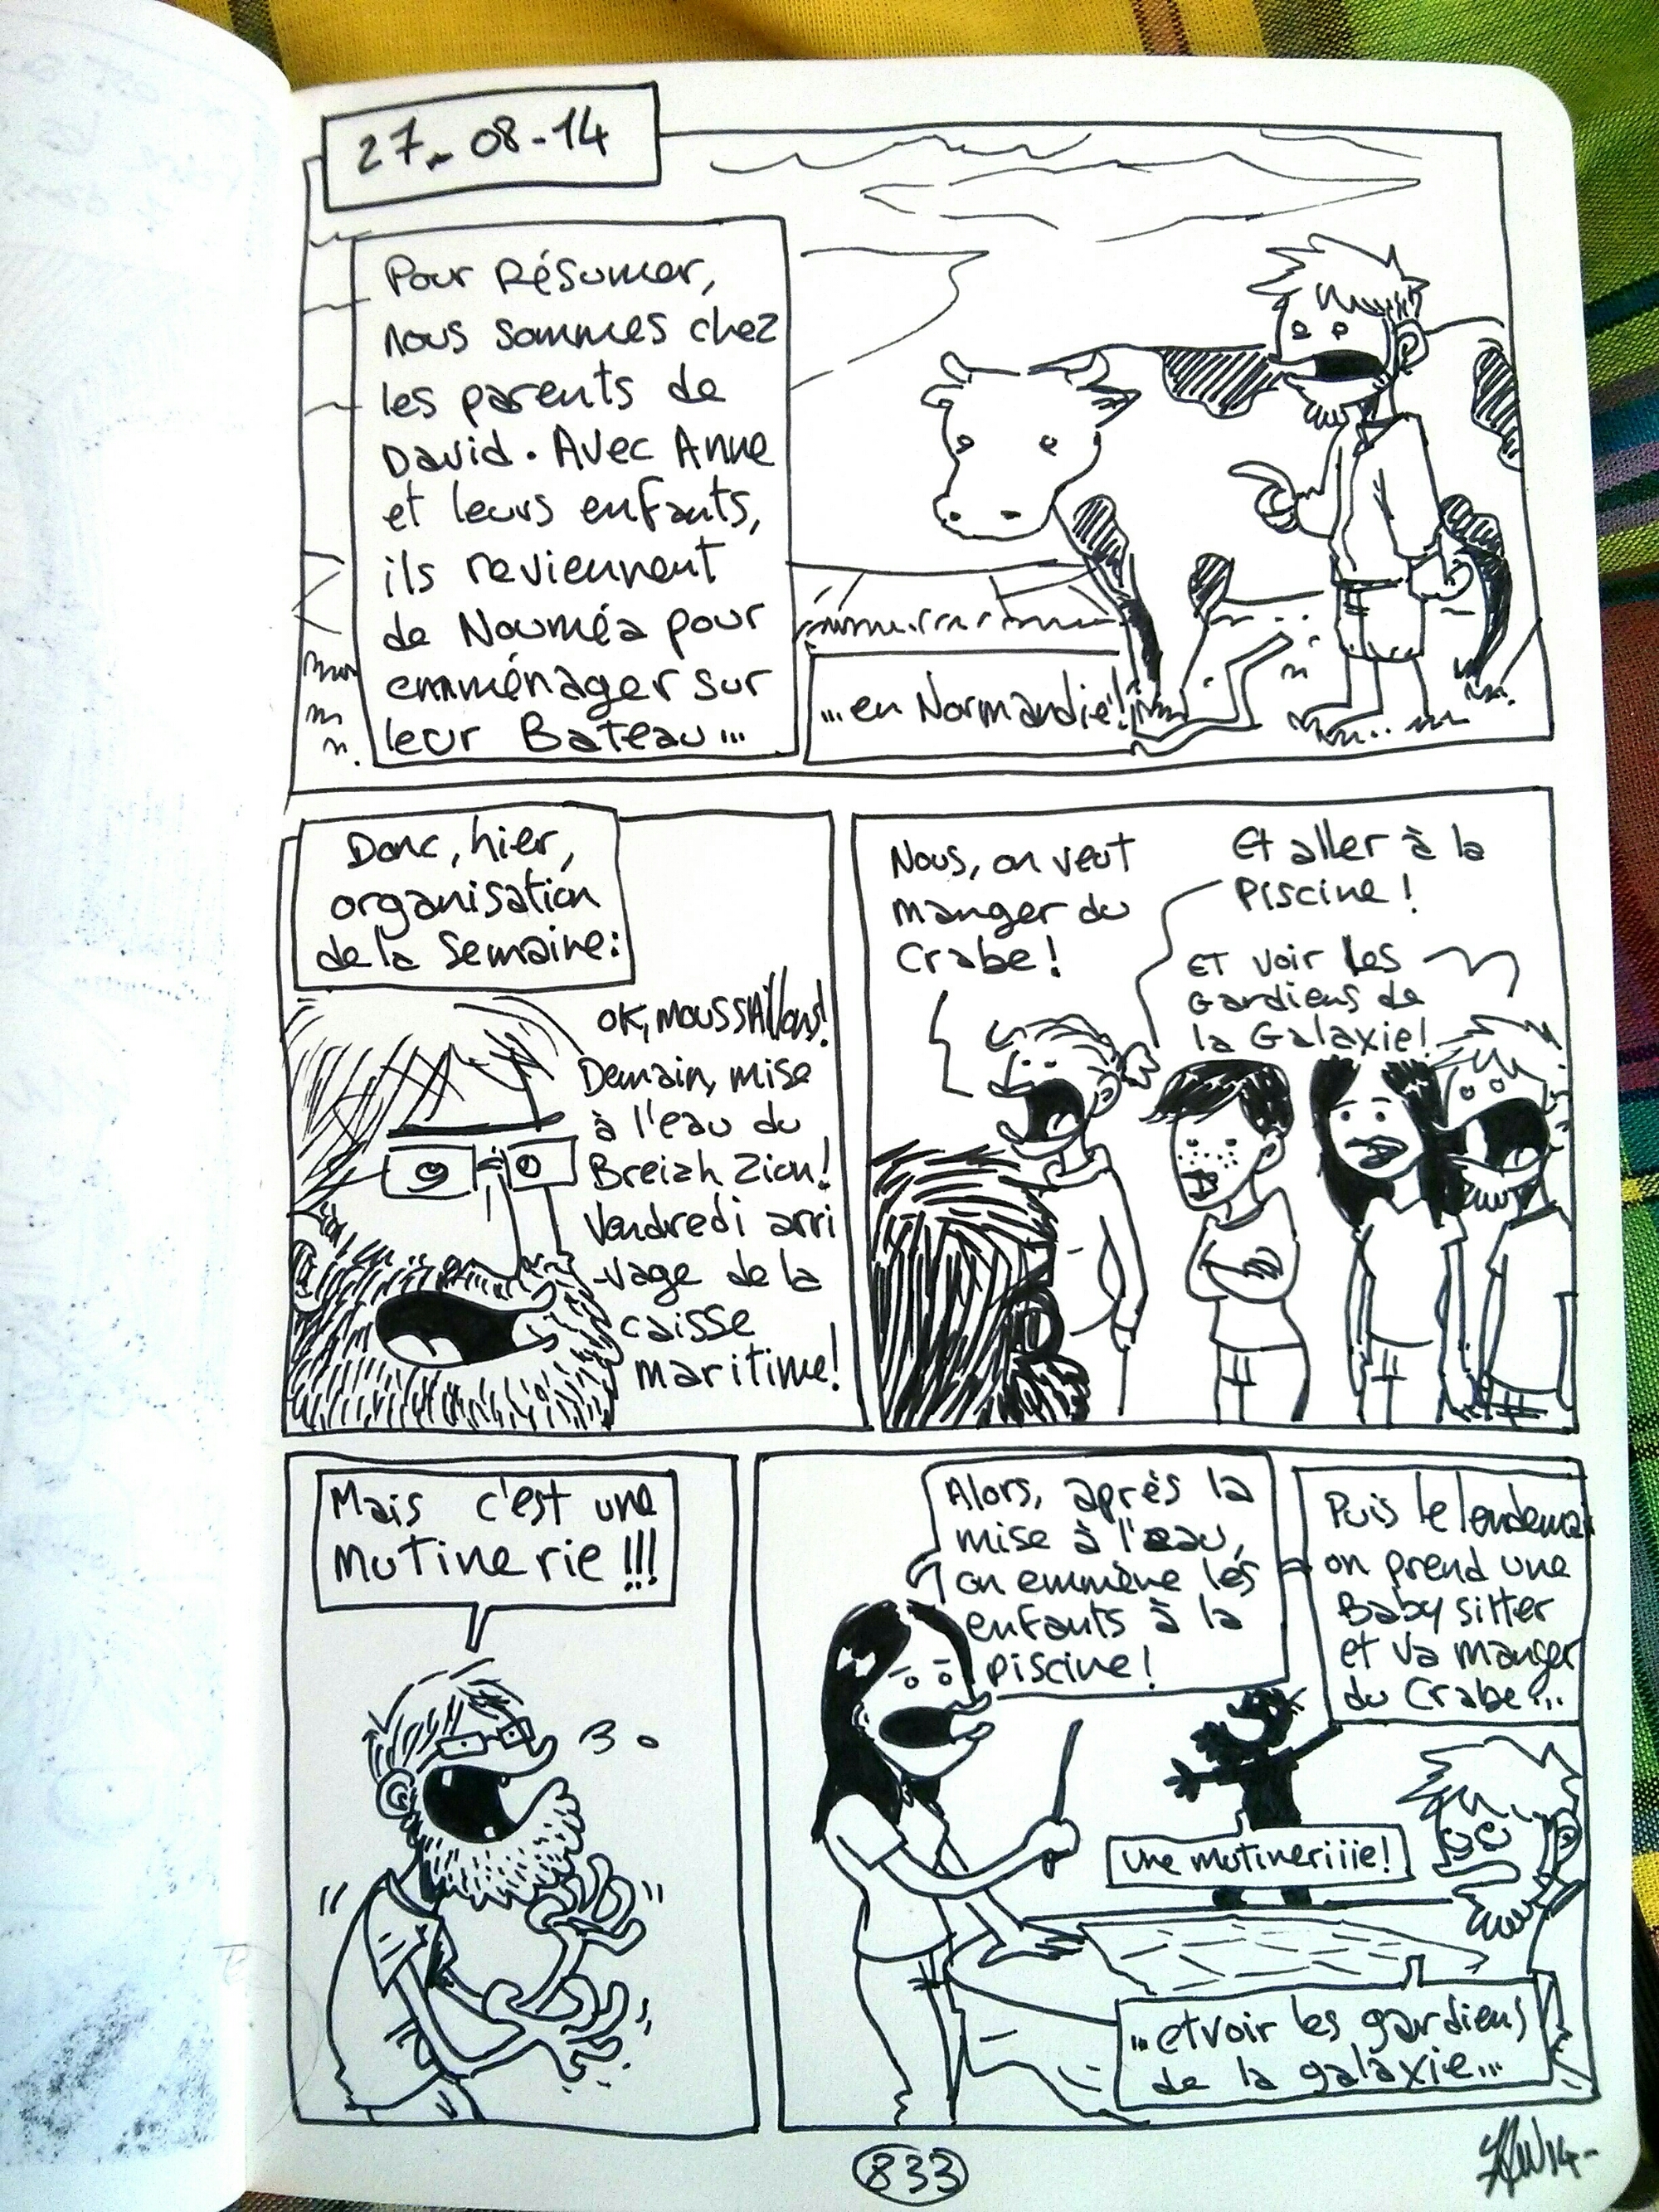 27-08-14
Pour Résumer,
nous sommes chez
les parents de
David. Avec Anne
et leurs enfants,
ils reviennent
de Nouméa pour
emménager sur
leur Bateau...
...en Normandie!
Donc, hier,
organisation
de la semaine:
OK, moussAillons!
Demain, mise
à l'eau du
Breizh Zion!
Vendredi arri
-vage de la
caisse
maritime!
Nous, on veut
manger du
Crabe!
Et aller à la
piscine!
Et voir les
Gardiens de
la Galaxie!
Mais c'est une
mutinerie!!!
Alors, après la
mise à l'eau,
on emmène les
enfants à la
piscine!
Puis le lendemain
on prend une
Baby sitter
et va manger
du Crabe...
une mutineriiie!
...et voir les gardiens
de la galaxie...
833